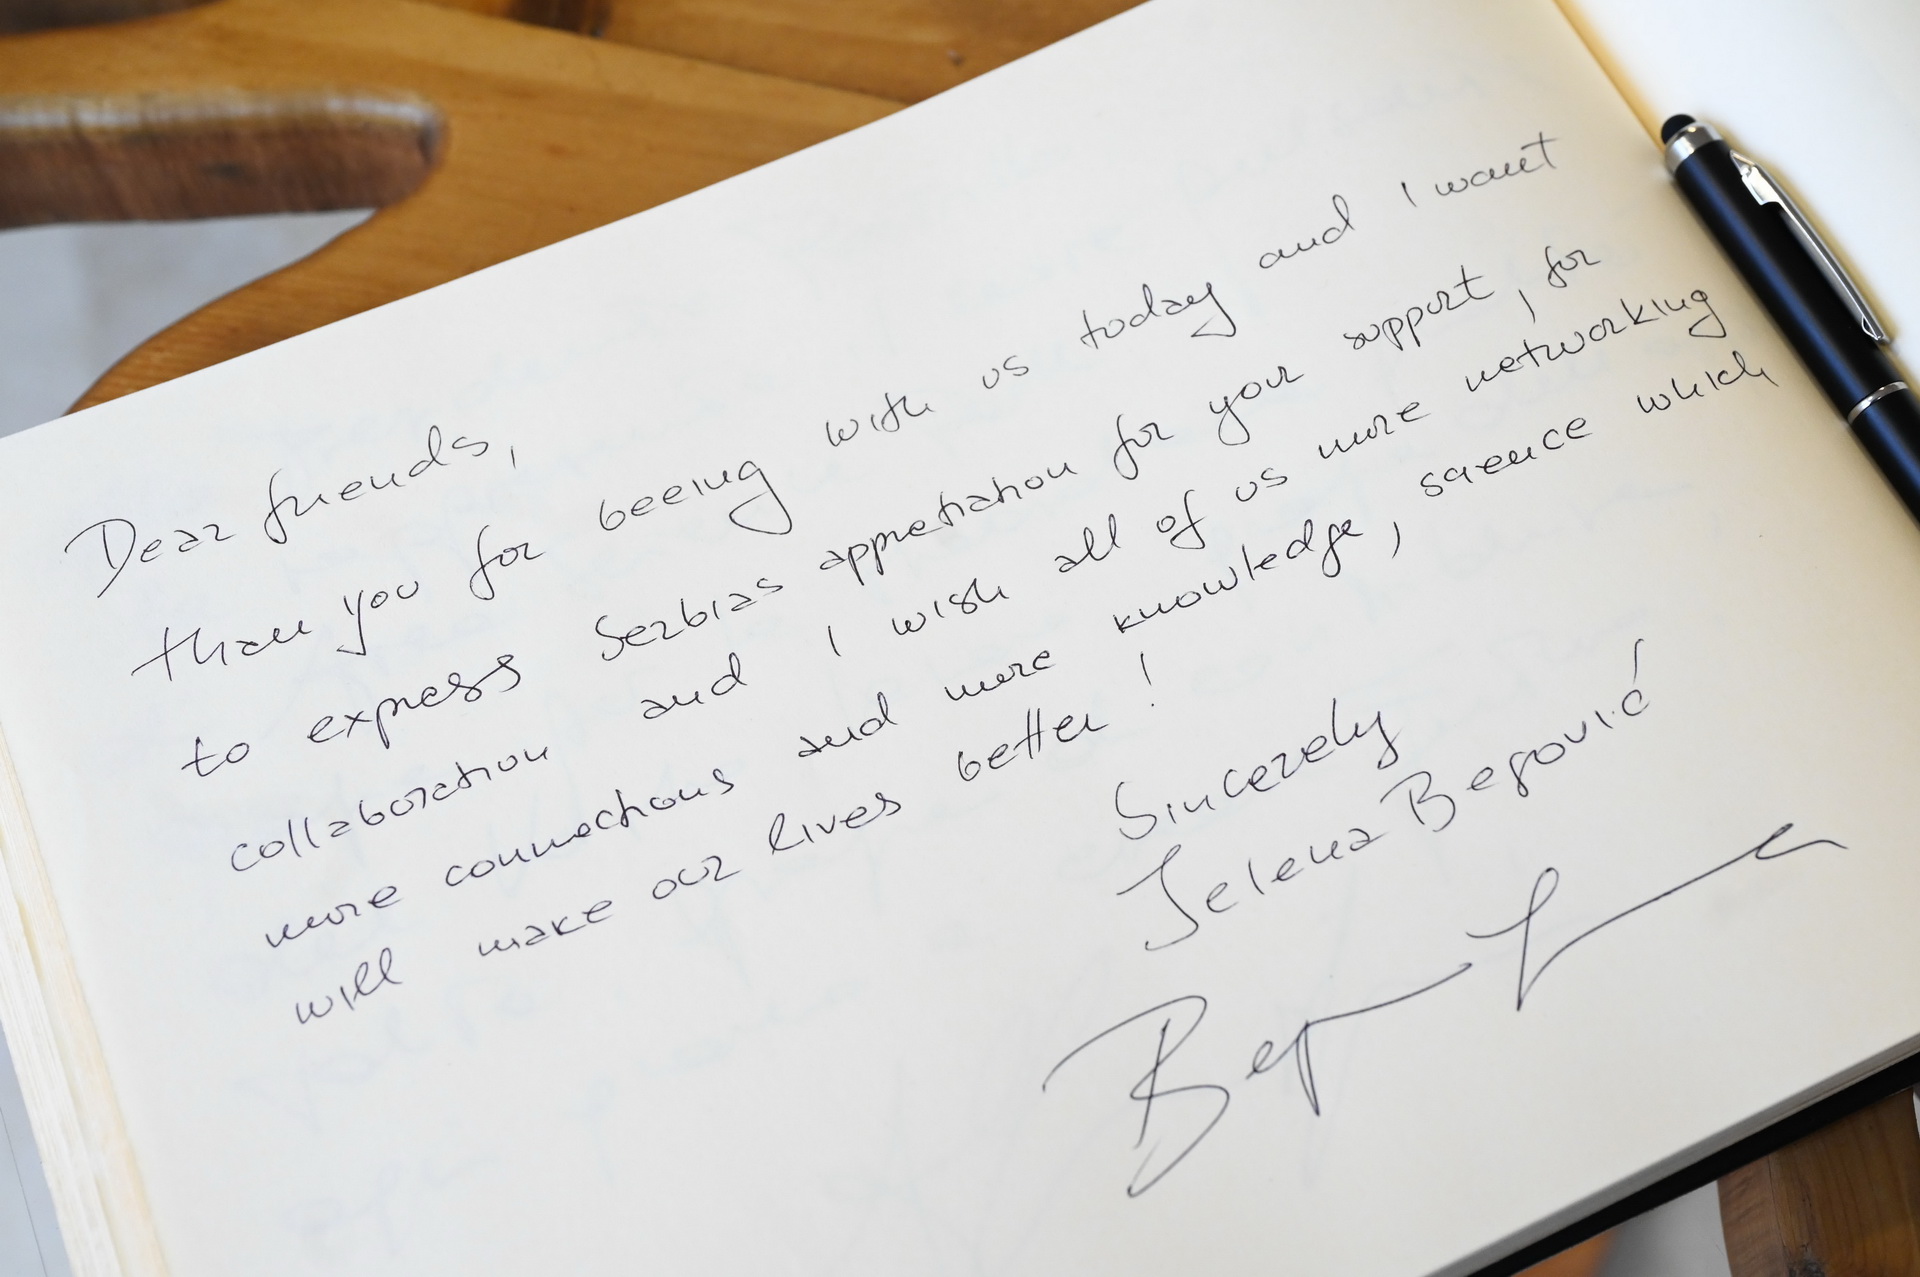 Dear friends,
than you for beeing with us today and I want
to express Serbias appretiation for your support, for
collaboration and I wish all of us more networking
more connections and more knowledge, science which
will make our lives better!
Sincerely
Jelena Begović